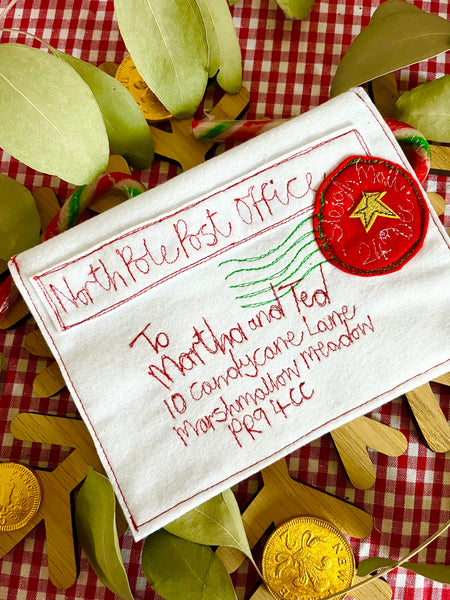 North Pole Post Office
Sleigh Mail
To
Martha and Ted
10 Candycane Lane
Marshmallow Meadow
PR9 4CC
NEW